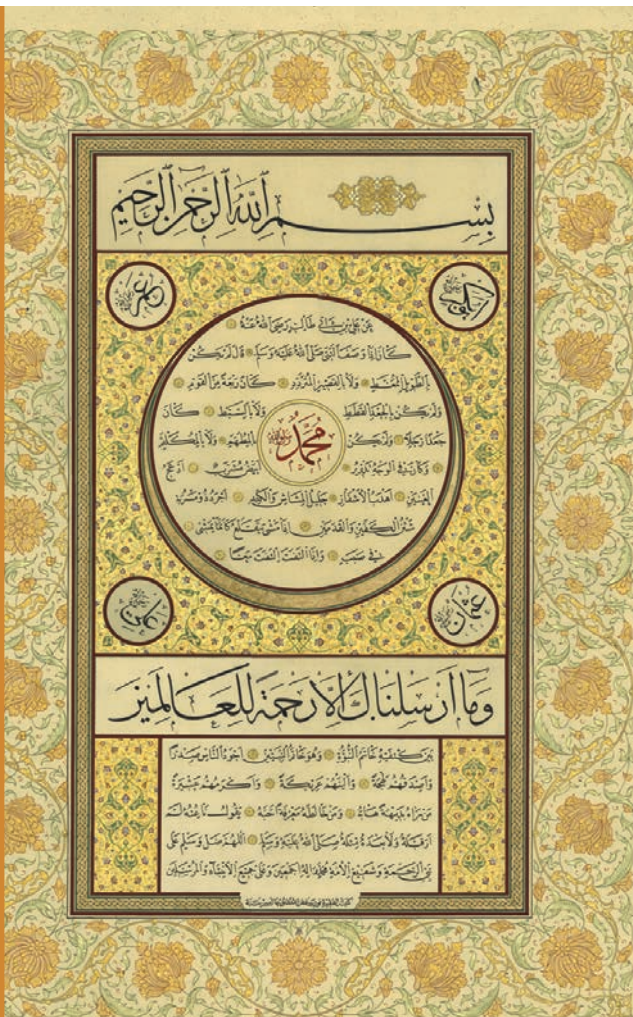 بِسْمِ ٱللَّهِ ٱلرَّحْمَٰنِ ٱلرَّحِيمِ
ابوبكر
عمر
عن علي بن ابي طالب رضي الله عنه
كان اذا وصف النبي صلى الله عليه وسلم قال لم يكن
بالطويل الممغط ولا بالقصير المتردد كان ربعة من القوم
ولم يكن بالجعد القطط ولا بالسبط كان
جعدا رجلا ولم يكن بالمطهم ولا بالمكلثم
محمد
وكان في الوجه تدوير ابيض مشرب ادعج
العينين اهدب الاشفار جليل المشاش والكتد اجرد ذو مسربة
شثن الكفين والقدمين اذا مشى يتقلع كانما يمشي
في صبب واذا التفت التفت معا
عثمان
علي
وما ارسلناك الا رحمة للعالمين
بين كتفيه خاتم النبوة وهو خاتم النبيين اجود الناس صدرا
واصدقهم لهجة والينهم عريكة واكرمهم عشيرة
من راه بديهة هابه ومن خالطه معرفة احبه يقول ناعته لم
ار قبله ولا بعده مثله صلى الله عليه وسلم اللهم صل وسلم على
نبي الرحمة وشفيع الامة محمد واله اجمعين وعلى جميع الانبياء والمرسلين